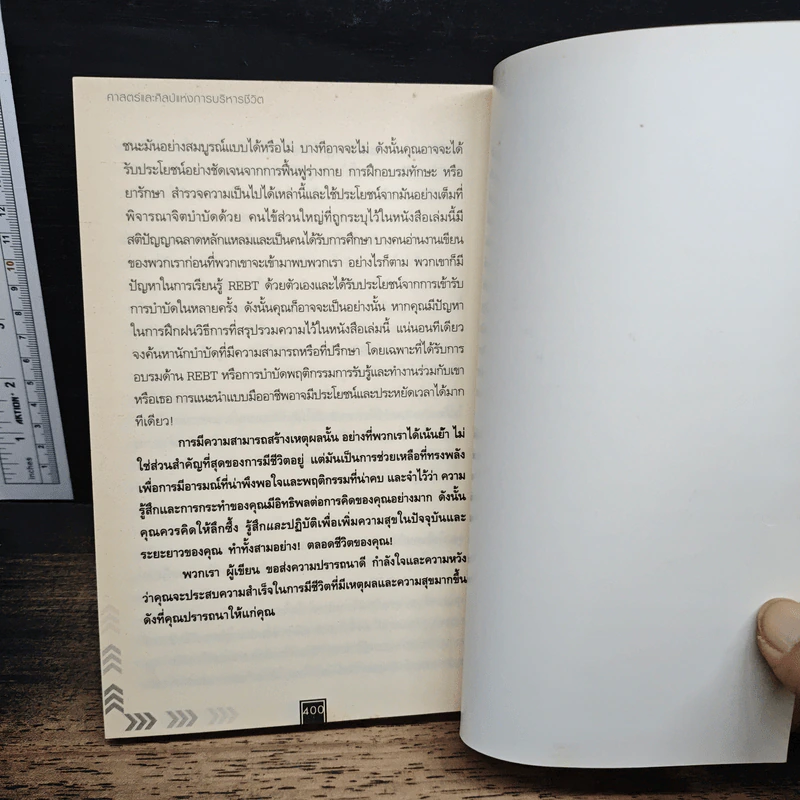 ศาสตร์และศิลป์แห่งการบริหารชีวิต
ชนะมันอย่างสมบูรณ์แบบได้หรือไม่ บางทีอาจจะไม่ ดังนั้นคุณอาจจะได้
รับประโยชน์อย่างชัดเจนจากการฟื้นฟูร่างกาย การฝึกอบรมทักษะ หรือ
ยารักษา สำรวจความเป็นไปได้เหล่านี้และใช้ประโยชน์จากมันอย่างเต็มที่
พิจารณาจิตบำบัดด้วย คนไข้ส่วนใหญ่ที่ถูกระบุไว้ในหนังสือเล่มนี้มี
สติปัญญาฉลาดหลักแหลมและเป็นคนได้รับการศึกษา บางคนอ่านงานเขียน
ของพวกเราก่อนที่พวกเขาจะเข้ามาพบพวกเรา อย่างไรก็ตาม พวกเขาก็มี
ปัญหาในการเรียนรู้ REBT ด้วยตัวเองและได้รับประโยชน์จากการเข้ารับ
การบำบัดในหลายครั้ง ดังนั้นคุณก็อาจจะเป็นอย่างนั้น หากคุณมีปัญหา
ในการฝึกฝนวิธีการที่สรุปรวมความไว้ในหนังสือเล่มนี้ แน่นอนทีเดียว
จงค้นหานักบำบัดที่มีความสามารถหรือที่ปรึกษา โดยเฉพาะที่ได้รับการ
อบรมด้าน REBT หรือการบำบัดพฤติกรรมการรับรู้และทำงานร่วมกับเขา
หรือเธอ การแนะนำแบบมืออาชีพอาจมีประโยชน์และประหยัดเวลาได้มาก
ทีเดียว!
การมีความสามารถสร้างเหตุผลนั้น อย่างที่พวกเราได้เน้นย้ำ ไม่
ใช่ส่วนสำคัญที่สุดของการมีชีวิตอยู่ แต่มันเป็นการช่วยเหลือที่ทรงพลัง
เพื่อการมีอารมณ์ที่น่าพึงพอใจและพฤติกรรมที่น่าคบ และจำไว้ว่า ความ
รู้สึกและการกระทำของคุณมีอิทธิพลต่อการคิดของคุณอย่างมาก ดังนั้น
คุณควรคิดให้ลึกซึ้ง รู้สึกและปฏิบัติเพื่อเพิ่มความสุขในปัจจุบันและ
ระยะยาวของคุณ ทำทั้งสามอย่าง! ตลอดชีวิตของคุณ!
พวกเรา ผู้เขียน ขอส่งความปรารถนาดี กำลังใจและความหวัง
ว่าคุณจะประสบความสำเร็จในการมีชีวิตที่มีเหตุผลและความสุขมากขึ้น
ดังที่คุณปรารถนาให้แก่คุณ
400
12
11
10
9
2
1
AKTION
inches